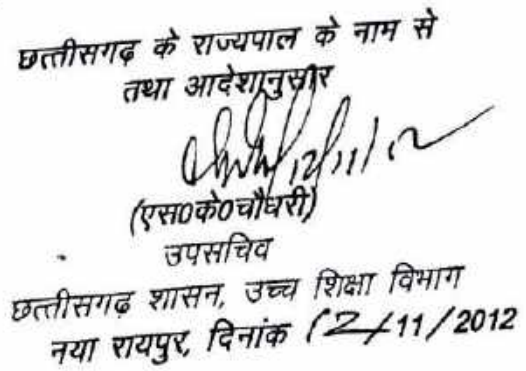 छत्तीसगढ़ के राज्यपाल के नाम से
तथा आदेशानुसार
12/11/12
(एस0के0चौधरी)
उपसचिव
छत्तीसगढ़ शासन, उच्च शिक्षा विभाग
नया रायपुर, दिनांक 12/11/2012